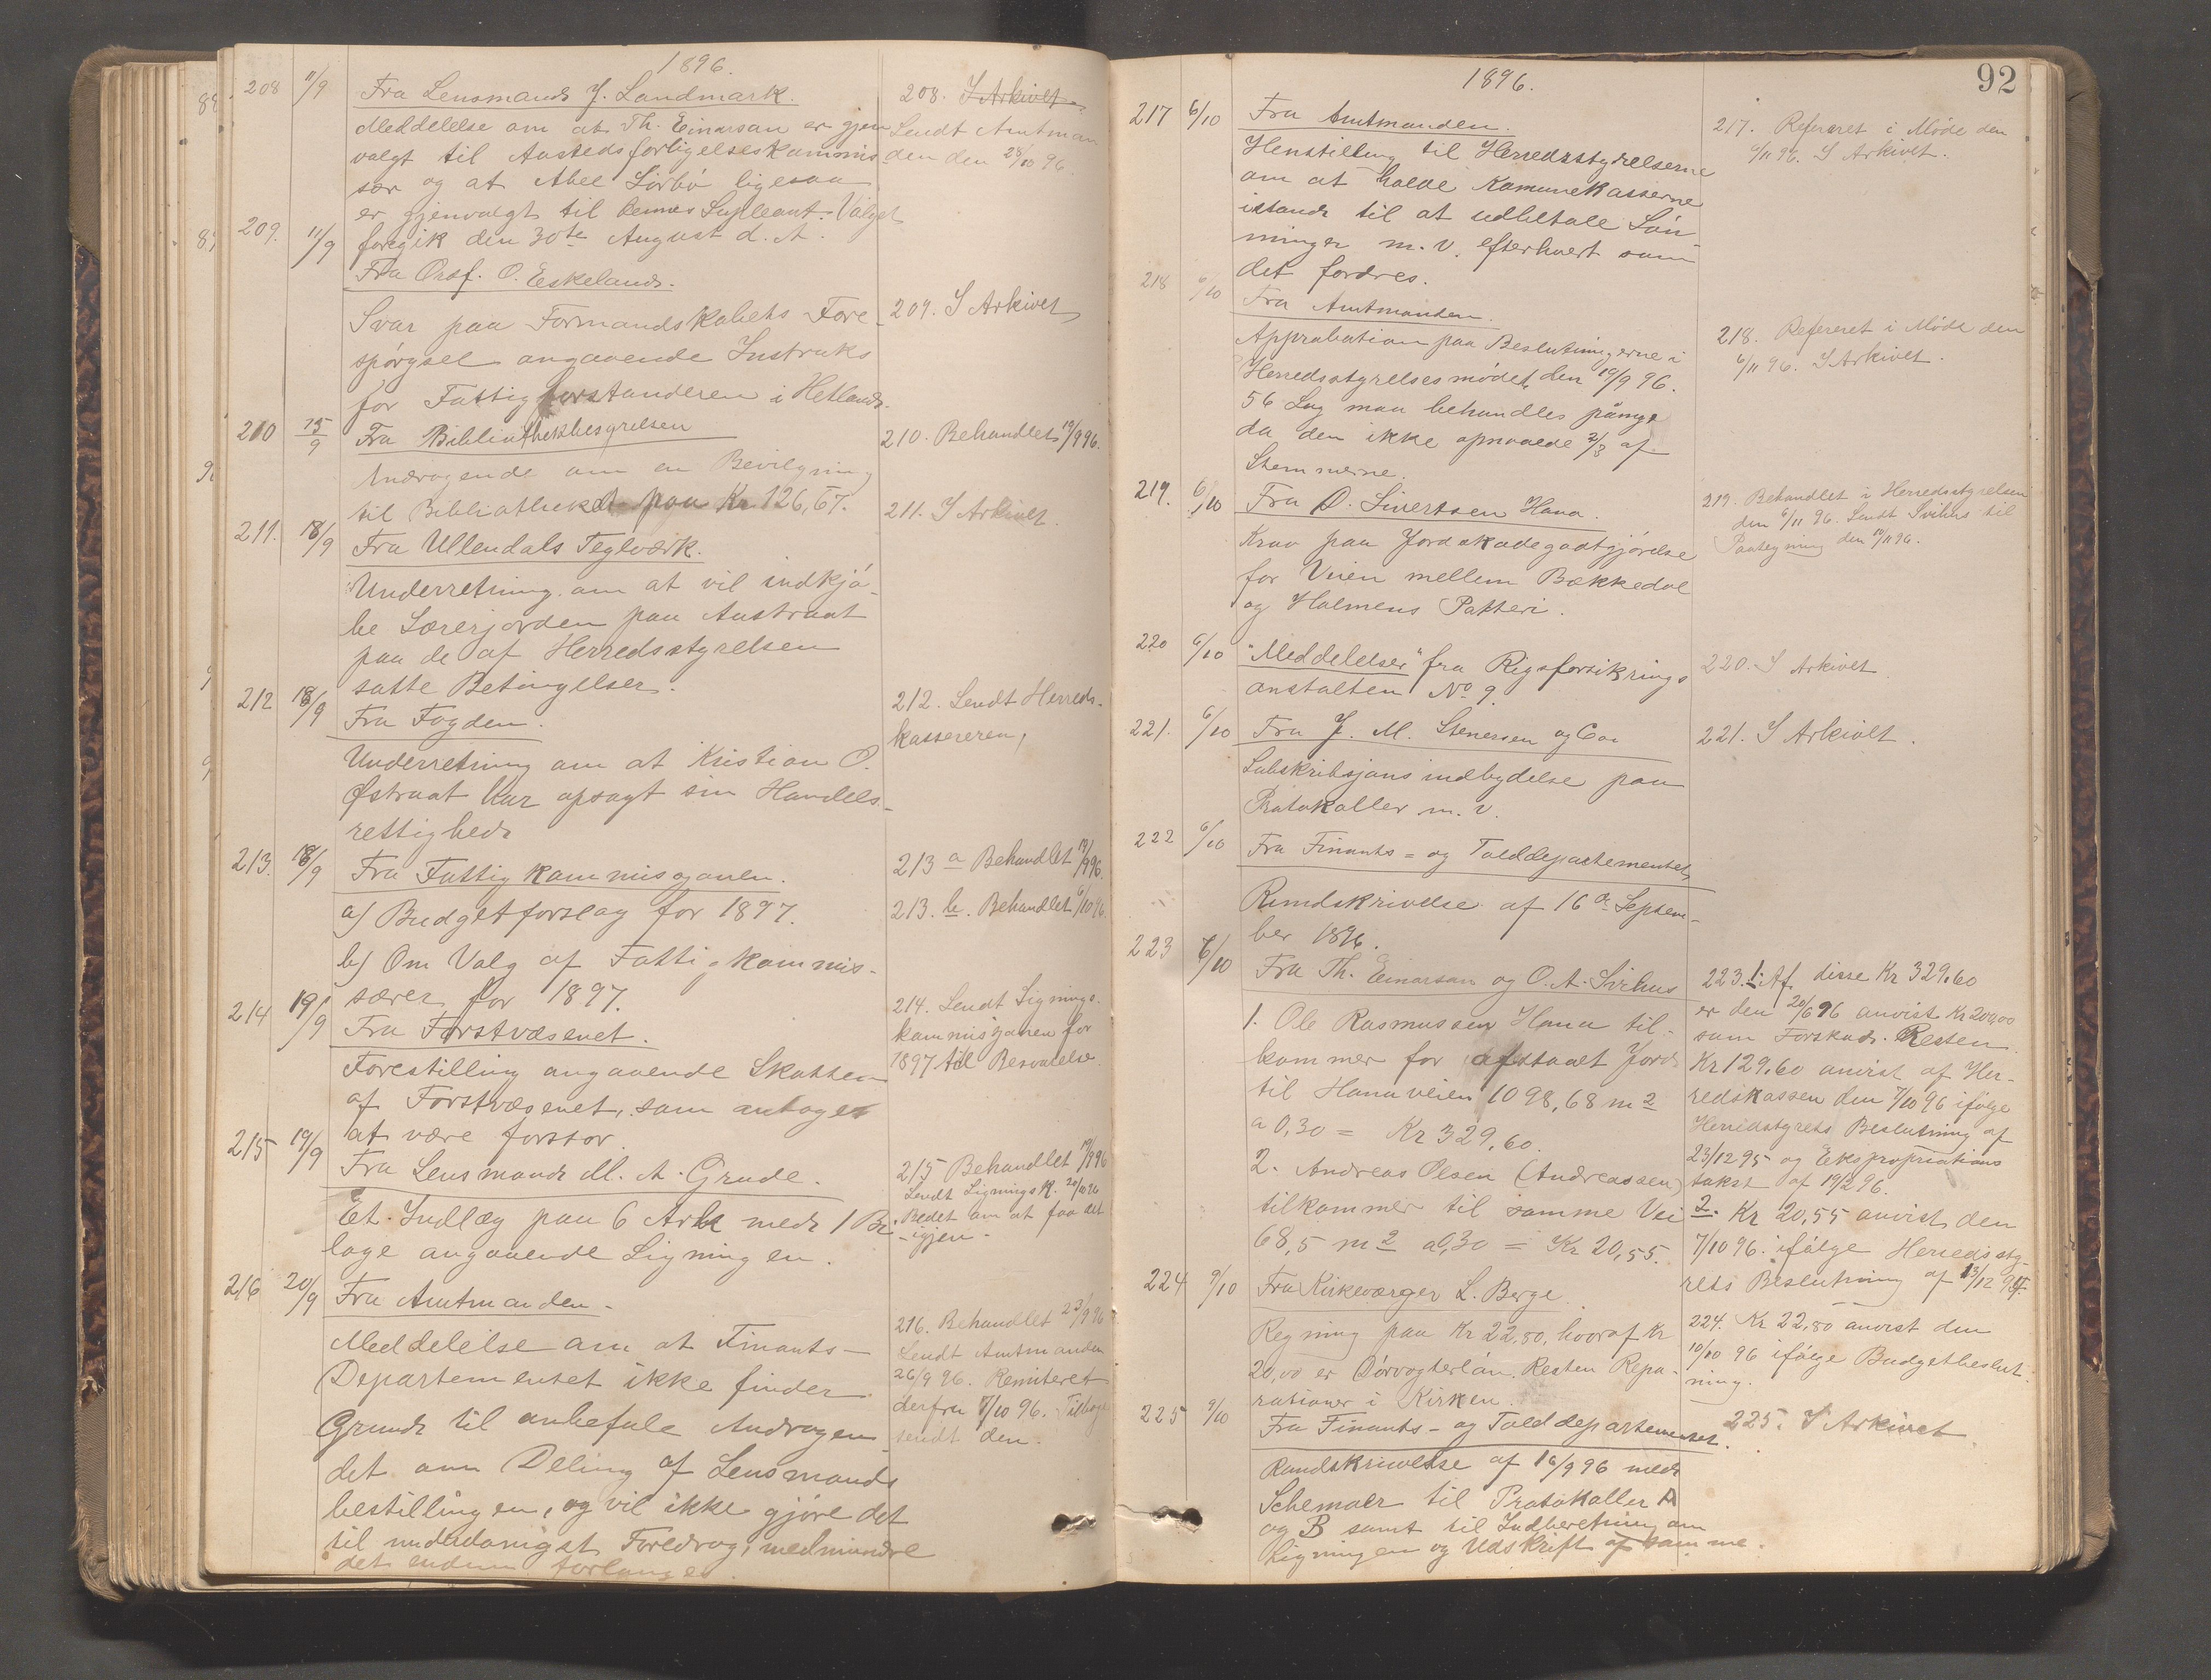 1896.
208 11/9 Fra Lensmand J. Landmark.
Meddelelse om at Th. Einarsan er gjen
valgt til Aastedsforligelseskommis
sær og at Abel Sörbö ligesaa
er gjenvalgt til Rennes Supleant. Valget
foregik den 30te August d. A.
208. I Arkivet
Sendt Amtman
den den 28/10 96.
209. 11/9 Fra O. Eskeland.
Svar paa Formandskabets Fore-
spörgsel angaaende Instruks
for Fattigforstanderen i Hetland.
209. I Arkivet
210 15/9 Fra Bibliothekbesyrelsen
Andragende om en Bevilgning
til Bibliotheket paa Kr 126,67.
210. Behandlet 19/9 96.
211. 18/9 Fra Ullendals Teglværk.
Underretning om at vil indkjö-
be Lærerjorden paa Austraat
paa de af Herredsstyrelsen
satte Betingelser.
211. I Arkivet.
212 18/9 Fra Fogden.
Underretning om at Kristian O.
Østraat har opsagt sin Handels-
rettighed
212. Sendt Herreds-
kassereren,
213. 18/9 Fra Fattigkommisjonen.
a) Budgetforslag for 1897.
b) Om Valg af Fattigkommis-
særer for 1897.
213 a Behandlet 19/9 96.
213. b. Behandlet 6/10 96
214 19/9 Fra Forstvæsenet.
Forestilling angaaende Skatten
af Forstvæsenet, som antages
at være forstor.
214. Sendt Lignings-
kommisjonen for
1897 til Besvarelse.
215 19/9 Fra Lensmand M. A. Grude.
Et Indlæg paa 6 Ark med 1 Bi-
lage angaaende Ligningen.
215 Behandlet 19/9 96
Sendt Ligningsk. 20/10 96
Bedet om at faa det
igjen.
216 20/9 Fra Amtmanden.
Meddelelse om at Finants-
Departementet ikke finder
Grund til anbefale Andragen-
det om Deling af Lensmands
bestillingen, og vil ikke gjöre det
til underdanigst Foredrag, medmindre
det endnu forlanges.
216. Behandlet 23/9 96
Sendt Amtmanden
26/9 96. Remiteret
derfra 7/10 96. Tilbage
sendt den.
92
1896.
217 6/10 Fra Amtmanden.
Henstilling til Herredsstyrelserne
om at holde Kamunekasserne
istand til at udbetale Lön-
ninger m. v. efterhvert som
det fordres.
217. Refereret i Möde den
6/11 96. I Arkivet.
218 6/10 Fra Amtmanden.
Approbation paa Beslutningerne i
Herredsstyrelsesmödet den 19/9 96.
56 Sag maa behandles paany
da den ikke opnaaede 2/3 af
Stemmerne.
218. Refereret i Möde den
6/11 96. I Arkivet.
219. 6/10 Fra O. Sivertsen Hana.
Krav paa Jordskadegodtgjörelse
for Veien mellem Bækkedal
og Holmens Potteri.
219. Behandlet i Herredsstyrelsen
den 6/11 96. Sendt Svihus til
Paategning den 10/11 96.
220 6/10 "Meddelelser" fra Rigsforsikrings
anstalten No 9.
220. I Arkivet
221. 6/10 Fra J. M. Stenersen og Co.
Subskribsjons indbydelse paa
Protokoller m. v.
221. I Arkivet.
222 6/10 Fra Finants = og Tolddepartementet
Rundskrivelse af 16de Septem-
ber 1896.
223 6/10 Fra Th. Einarsan og O. A. Svihus
1. Ole Rasmussen Hana til-
kommer for afstaaet Jord
til Hanaveien 1098,68 m2
a 0,30 = Kr 329,60.
2. Andreas Olsen (Andreassen)
tilkommer til samme Vei
68,5 m2 a 0,30 = Kr 20,55.
223.1. Af disse Kr 329.60
er den 20/6 96 anvist Kr 200,00
som Forskud. Resten
Kr 129.60 anvist af Her-
redskassen den 7/10 96 ifölge
Herredstyrets Beslutning af
23/12 95 og Ekspropriations
takst af 19/2 96.
2. Kr 20,55 anvist den
7/10 96. ifölge Herredssty-
rets Beslutning af 23/12 95.
224 9/10 Fra Kirkeværger L. Berge.
Regning paa Kr 22,80, hvoraf Kr
20,00 er Dörvogterlön. Resten Repa-
rationer i Kirken.
224. Kr 22,80 anvist den
10/10 96 ifölge Budgetbeslut-
ning.
225 9/10 Fra Finants- og Tolddepartementet.
Rundskrivelse af 16/9 96 med
Schemaer til Protokoller A
og B samt til Indberetning om
Ligningen og Udskrift af samme.
225. I Arkivet